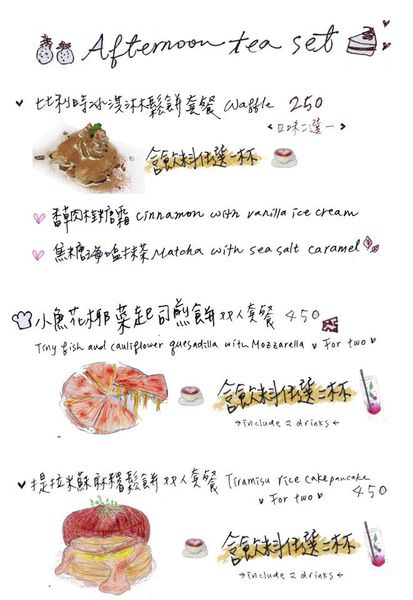 Afternoon tea set
比利時冰淇淋鬆餅套餐 Waffle 250
<口味二選一>
含飲料任選一杯
香草肉桂糖霜 cinnamon with vanilla ice cream
焦糖海塩抹茶 Matcha with sea salt caramel
小魚花椰菜起司煎餅双人套餐 450
Tiny fish and cauliflower quesadilla with Mozzarella For two
含飲料任選二杯
→include 2 drinks←
提拉米蘇麻糬鬆餅双人套餐 Tiramisu rice cake pancake
For two 450
含飲料任選二杯
→include 2 drinks←